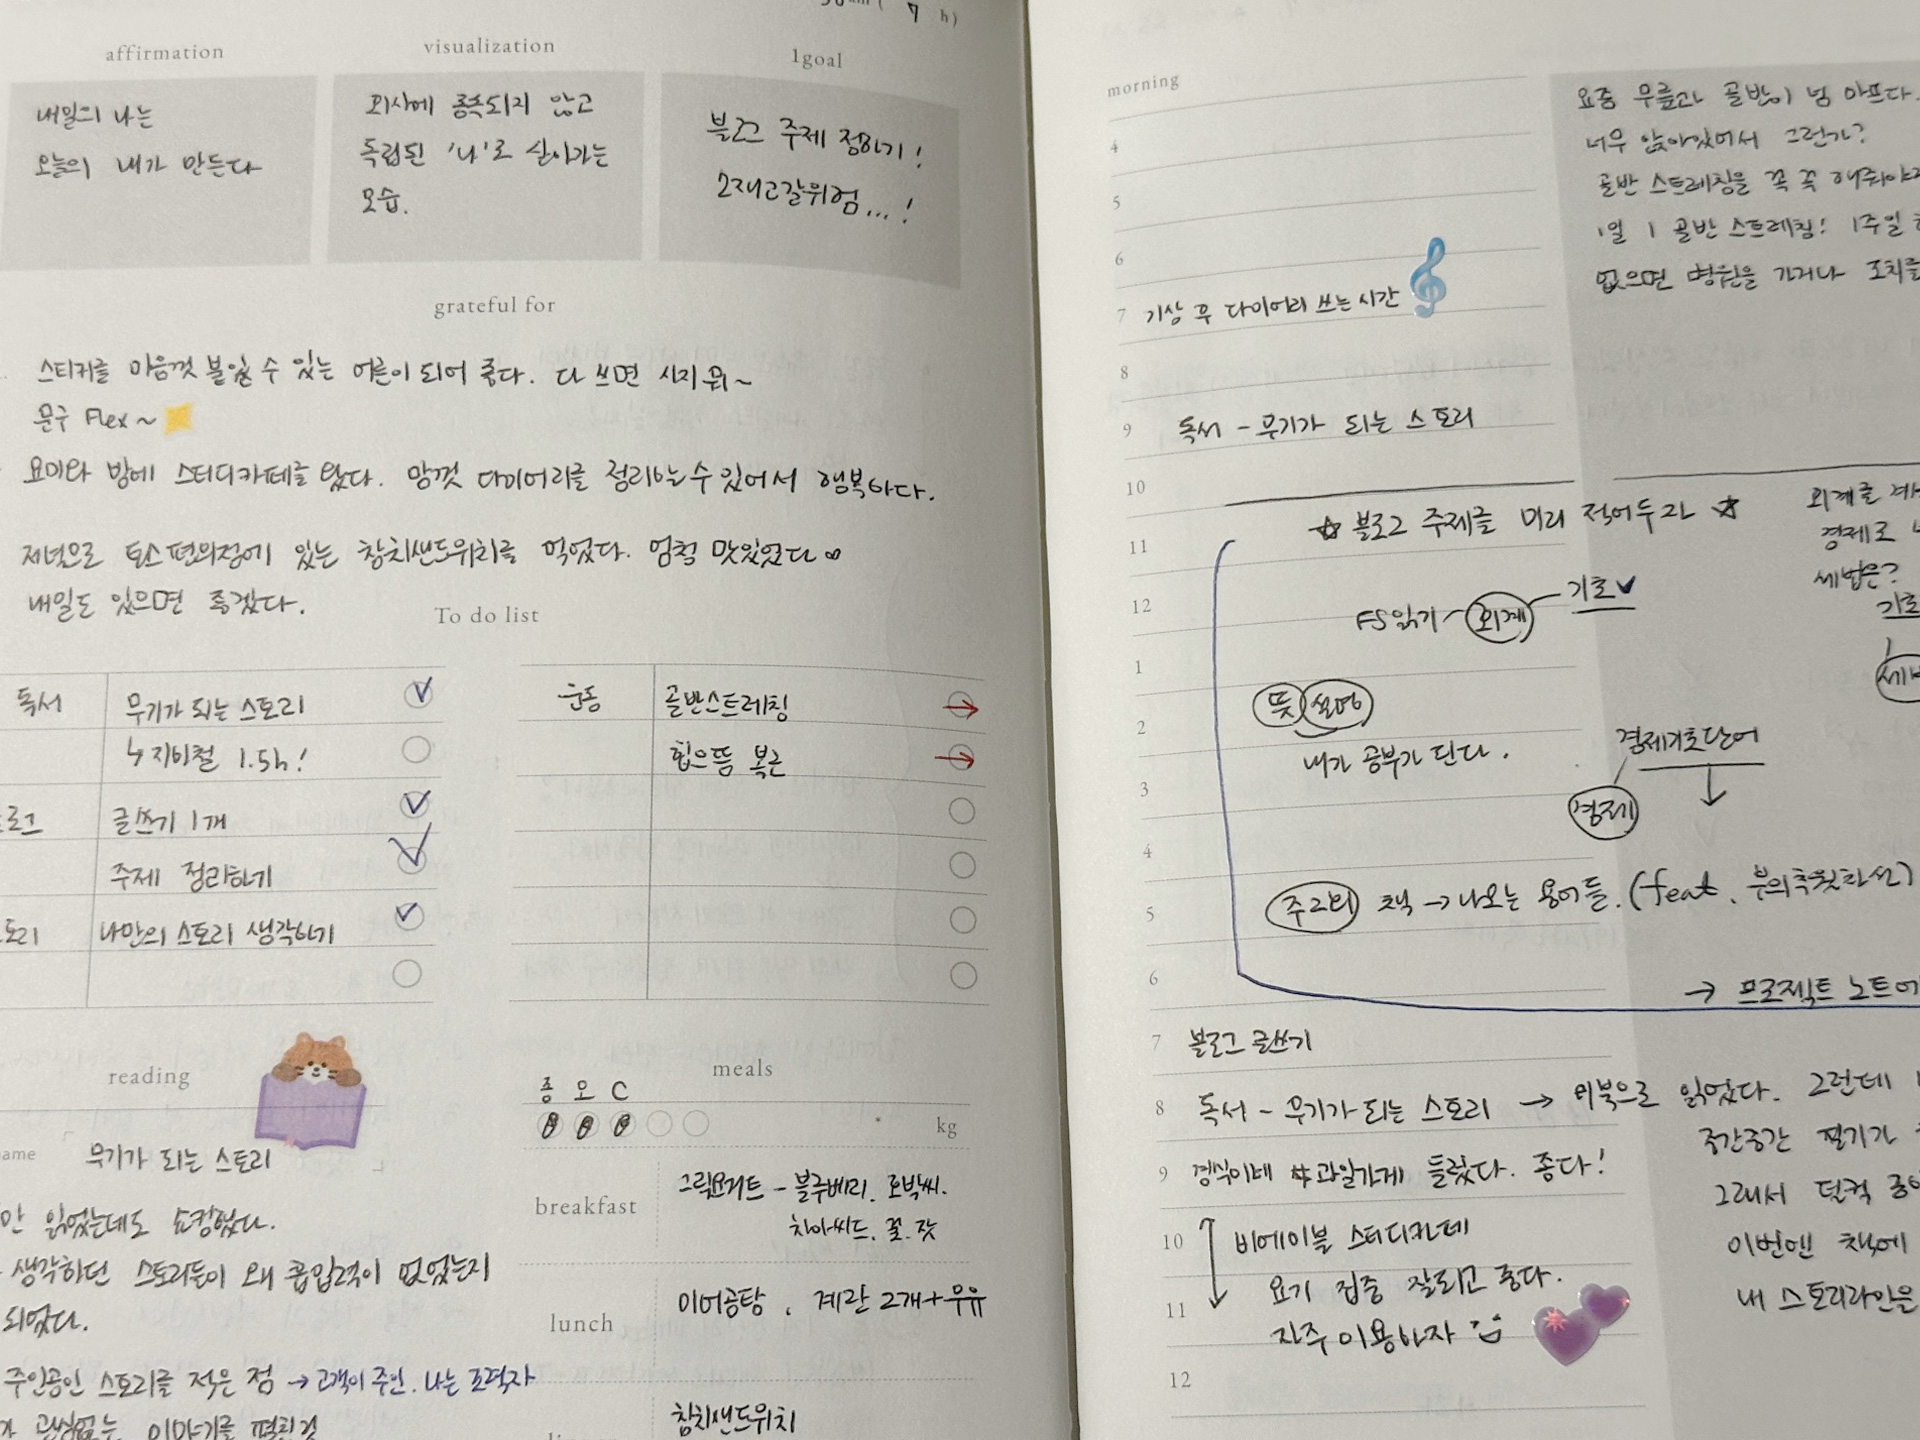 7 h)
affirmation
visualization
1goal
내일의 나는
오늘의 내가 만든다
회사에 종속되지 않고
독립된 '나'로 살아가는
모습.
블로그 주제 정하기!
소재고갈위험...!
grateful for
스티커를 마음껏 붙일 수 있는 어른이 되어 좋다. 다 쓰면 사지 뭐~
문구 Flex~
요미와 밤에 스터디카페를 왔다. 맘껏 다이어리를 정리하는 수 있어서 행복하다.
저녁으로 토스 편의점에 있는 참치샌드위치를 먹었다. 엄청 맛있었다
내일도 있으면 좋겠다.
To do list
독서 무기가 되는 스토리
↳ 지하철 1.5h!
로그 글쓰기 1개
주제 정리하기
토리 나만의 스토리 생각하기
운동 골반스트레칭
힙으뜸 복근
reading
name 무기가 되는 스토리
만 읽었는데도 쇼킹했다.
생각하던 스토리들이 왜 흡입력이 없었는지
되었다.
주인공인 스토리를 적은 점 → 고객이 주인. 나는 조력자
관심없는 이야기를 펼친것
meals
종 오 C
kg
breakfast
그릭요거트 - 블루베리. 호박씨.
치아씨드. 꿀. 잣
lunch
이어공탕, 계란 2개+우유
참치샌드위치
morning
4
5
6
7 기상 후 다이어리 쓰는 시간
8
9 독서 - 무기가 되는 스토리
10
11
12
1
2
3
4
5
6
요즘 무릎과 골반이 넘 아프다.
너무 앉아있어서 그런가?
골반 스트레칭을 꼭 꼭 해줘야
1일 1 골반 스트레칭! 1주일
없으면 병원을 가거나 조치를
☆ 블로그 주제를 미리 적어두자 ☆
FS읽기 - 회계 - 기초✓
뜻 설명
내가 공부가 된다.
회계를
경제로
세법은?
기초
경제기초단어
경제
주2회 책 → 나오는 용어들. (feat. 부의추월차선)
→ 프로젝트 노트에
7 블로그 글쓰기
8 독서 - 무기가 되는 스토리 → 이북으로 읽었다. 그런데
중간중간 필기가
9 경식이네 과일가게 들렀다. 좋다!
그래서 덜컥
10 비에이블 스터디카페
이번엔 책에
11 요기 집중 잘되고 좋다.
내 스토리라인을
자주 이용하자
12